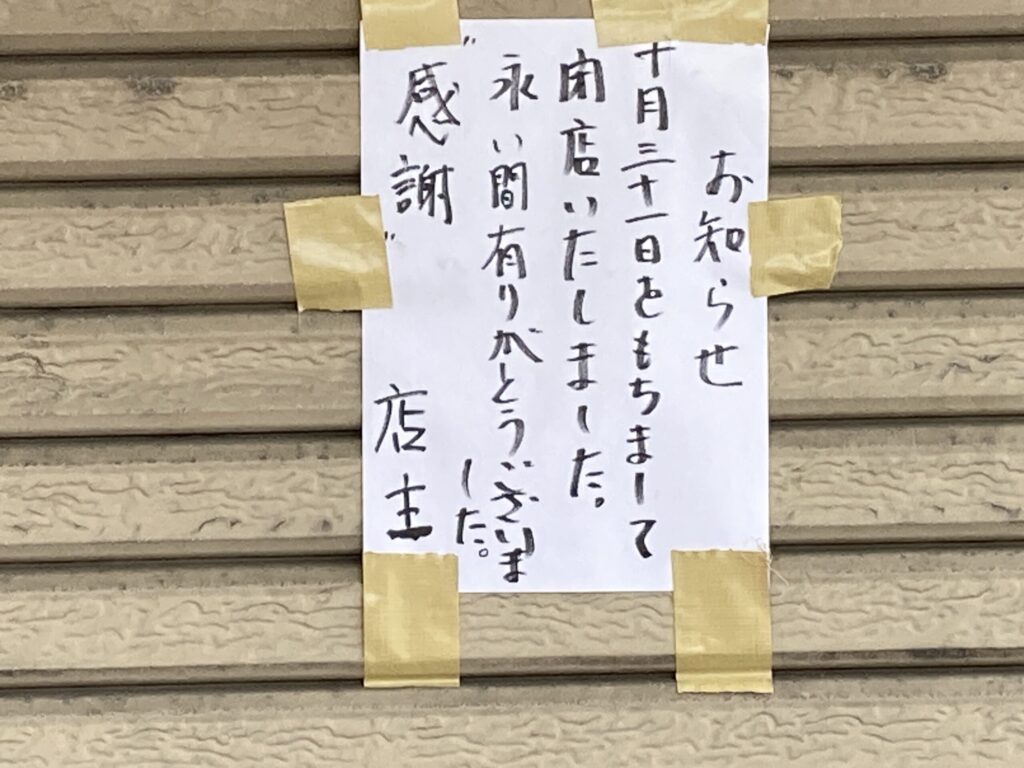 お知らせ
十月三十一日をもちまして
閉店いたしました。
永い間有りがとうございま
した。
〝感謝〟
店主